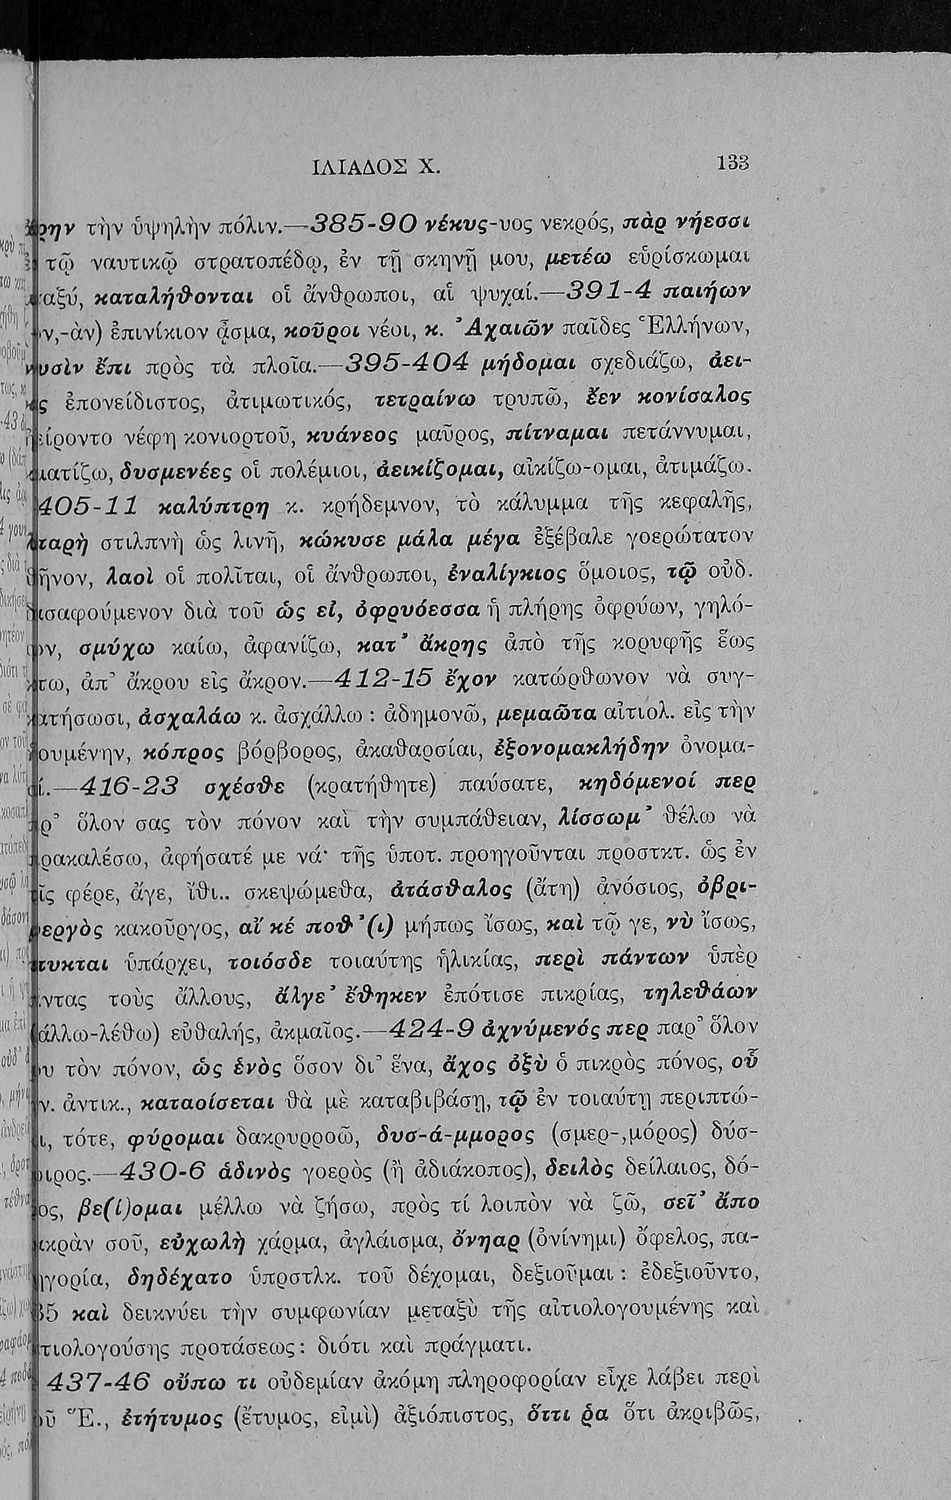 ΙΛΙΑΔΟΣ Χ. 133
τὴν ὑψηλὴν πόλιν.—385-90 νέκυς-υος νεκρός, πὰρ νήεσσι
τῷ ναυτικῷ στρατοπέδῳ, ἐν τῇ σκηνῇ μου, μετέω εὑρίσκωμαι
καταλήθονται οἱ ἄνθρωποι, αἱ ψυχαί.—391-4 παιήων
ἐπινίκιον ᾆσμα, κοῦροι νέοι, κ. Ἀχαιῶν παῖδες Ἑλλήνων,
ἔπι πρὸς τὰ πλοῖα.—395-404 μήδομαι σχεδιάζω, ἀει-
ἐπονείδιστος, ἀτιμωτικός, τετραίνω τρυπῶ, ἔεν κονίσαλος
νέφη κονιορτοῦ, κυάνεος μαῦρος, πίτναμαι πετάννυμαι,
δυσμενέες οἱ πολέμιοι, ἀεικίζομαι, αἰκίζω-ομαι, ἀτιμάζω.
405-11 καλύπτρη κ. κρήδεμνον, τὸ κάλυμμα τῆς κεφαλῆς,
στιλπνὴ ὡς λινῆ, κώκυσε μάλα μέγα ἐξέβαλε γοερώτατον
λαοὶ οἱ πολῖται, οἱ ἄνθρωποι, ἐναλίγκιος ὅμοιος, τῷ οὐδ.
διὰ τοῦ ὡς εἰ, ὀφρυόεσσα ἡ πλήρης ὀφρύων, γηλό-
σμύχω καίω, ἀφανίζω, κατ' ἄκρης ἀπὸ τῆς κορυφῆς ἕως
ἀπ' ἄκρου εἰς ἄκρον.—412-15 ἔχον κατώρθωνον νὰ συγ-
ἀσχαλάω κ. ἀσχάλλω : ἀδημονῶ, μεμαῶτα αἰτιολ. εἰς τὴν
κόπρος βόρβορος, ἀκαθαρσίαι, ἐξονομακλήδην ὀνομα-
—416-23 σχέσθε (κρατήθητε) παύσατε, κηδόμενοί περ
ὅλον σας τὸν πόνον καὶ τὴν συμπάθειαν, λίσσωμ' θέλω νὰ
ἀφήσατέ με νά· τῆς ὑποτ. προηγοῦνται προστκτ. ὡς ἐν
φέρε, ἄγε, ἴθι.. σκεψώμεθα, ἀτάσθαλος (ἄτη) ἀνόσιος, ὀβρι-
κακοῦργος, αἴ κέ ποθ'(ι) μήπως ἴσως, καὶ τῷ γε, νὺ ἴσως,
ὑπάρχει, τοιόσδε τοιαύτης ἡλικίας, περὶ πάντων ὑπὲρ
τοὺς ἄλλους, ἄλγε' ἔθηκεν ἐπότισε πικρίας, τηλεθάων
εὐθαλής, ἀκμαῖος.—424-9 ἀχνύμενός περ παρ' ὅλον
τὸν πόνον, ὡς ἑνὸς ὅσον δι' ἕνα, ἄχος ὀξὺ ὁ πικρὸς πόνος, οὗ
ἀντικ., καταοίσεται θὰ μὲ καταβιβάσῃ, τῷ ἐν τοιαύτῃ περιπτώ-
τότε, φύρομαι δακρυρροῶ, δυσ-ά-μμορος (σμερ-,μόρος) δύσ-
—430-6 ἀδινὸς γοερὸς (ἢ ἀδιάκοπος), δειλὸς δείλαιος, δό-
βε(ί)ομαι μέλλω νὰ ζήσω, πρὸς τί λοιπὸν νὰ ζῶ, σεῖ' ἄπο
σοῦ, εὐχωλὴ χάρμα, ἀγλάισμα, ὄνηαρ (ὀνίνημι) ὄφελος, πα-
δηδέχατο ὑπρστλκ. τοῦ δέχομαι, δεξιοῦμαι : ἐδεξιοῦντο,
καὶ δεικνύει τὴν συμφωνίαν μεταξὺ τῆς αἰτιολογουμένης καὶ
προτάσεως : διότι καὶ πράγματι.
437-46 οὔπω τι οὐδεμίαν ἀκόμη πληροφορίαν εἶχε λάβει περὶ
Ἕ., ἐτήτυμος (ἔτυμος, εἰμὶ) ἀξιόπιστος, ὅττι ῥα ὅτι ἀκριβῶς,